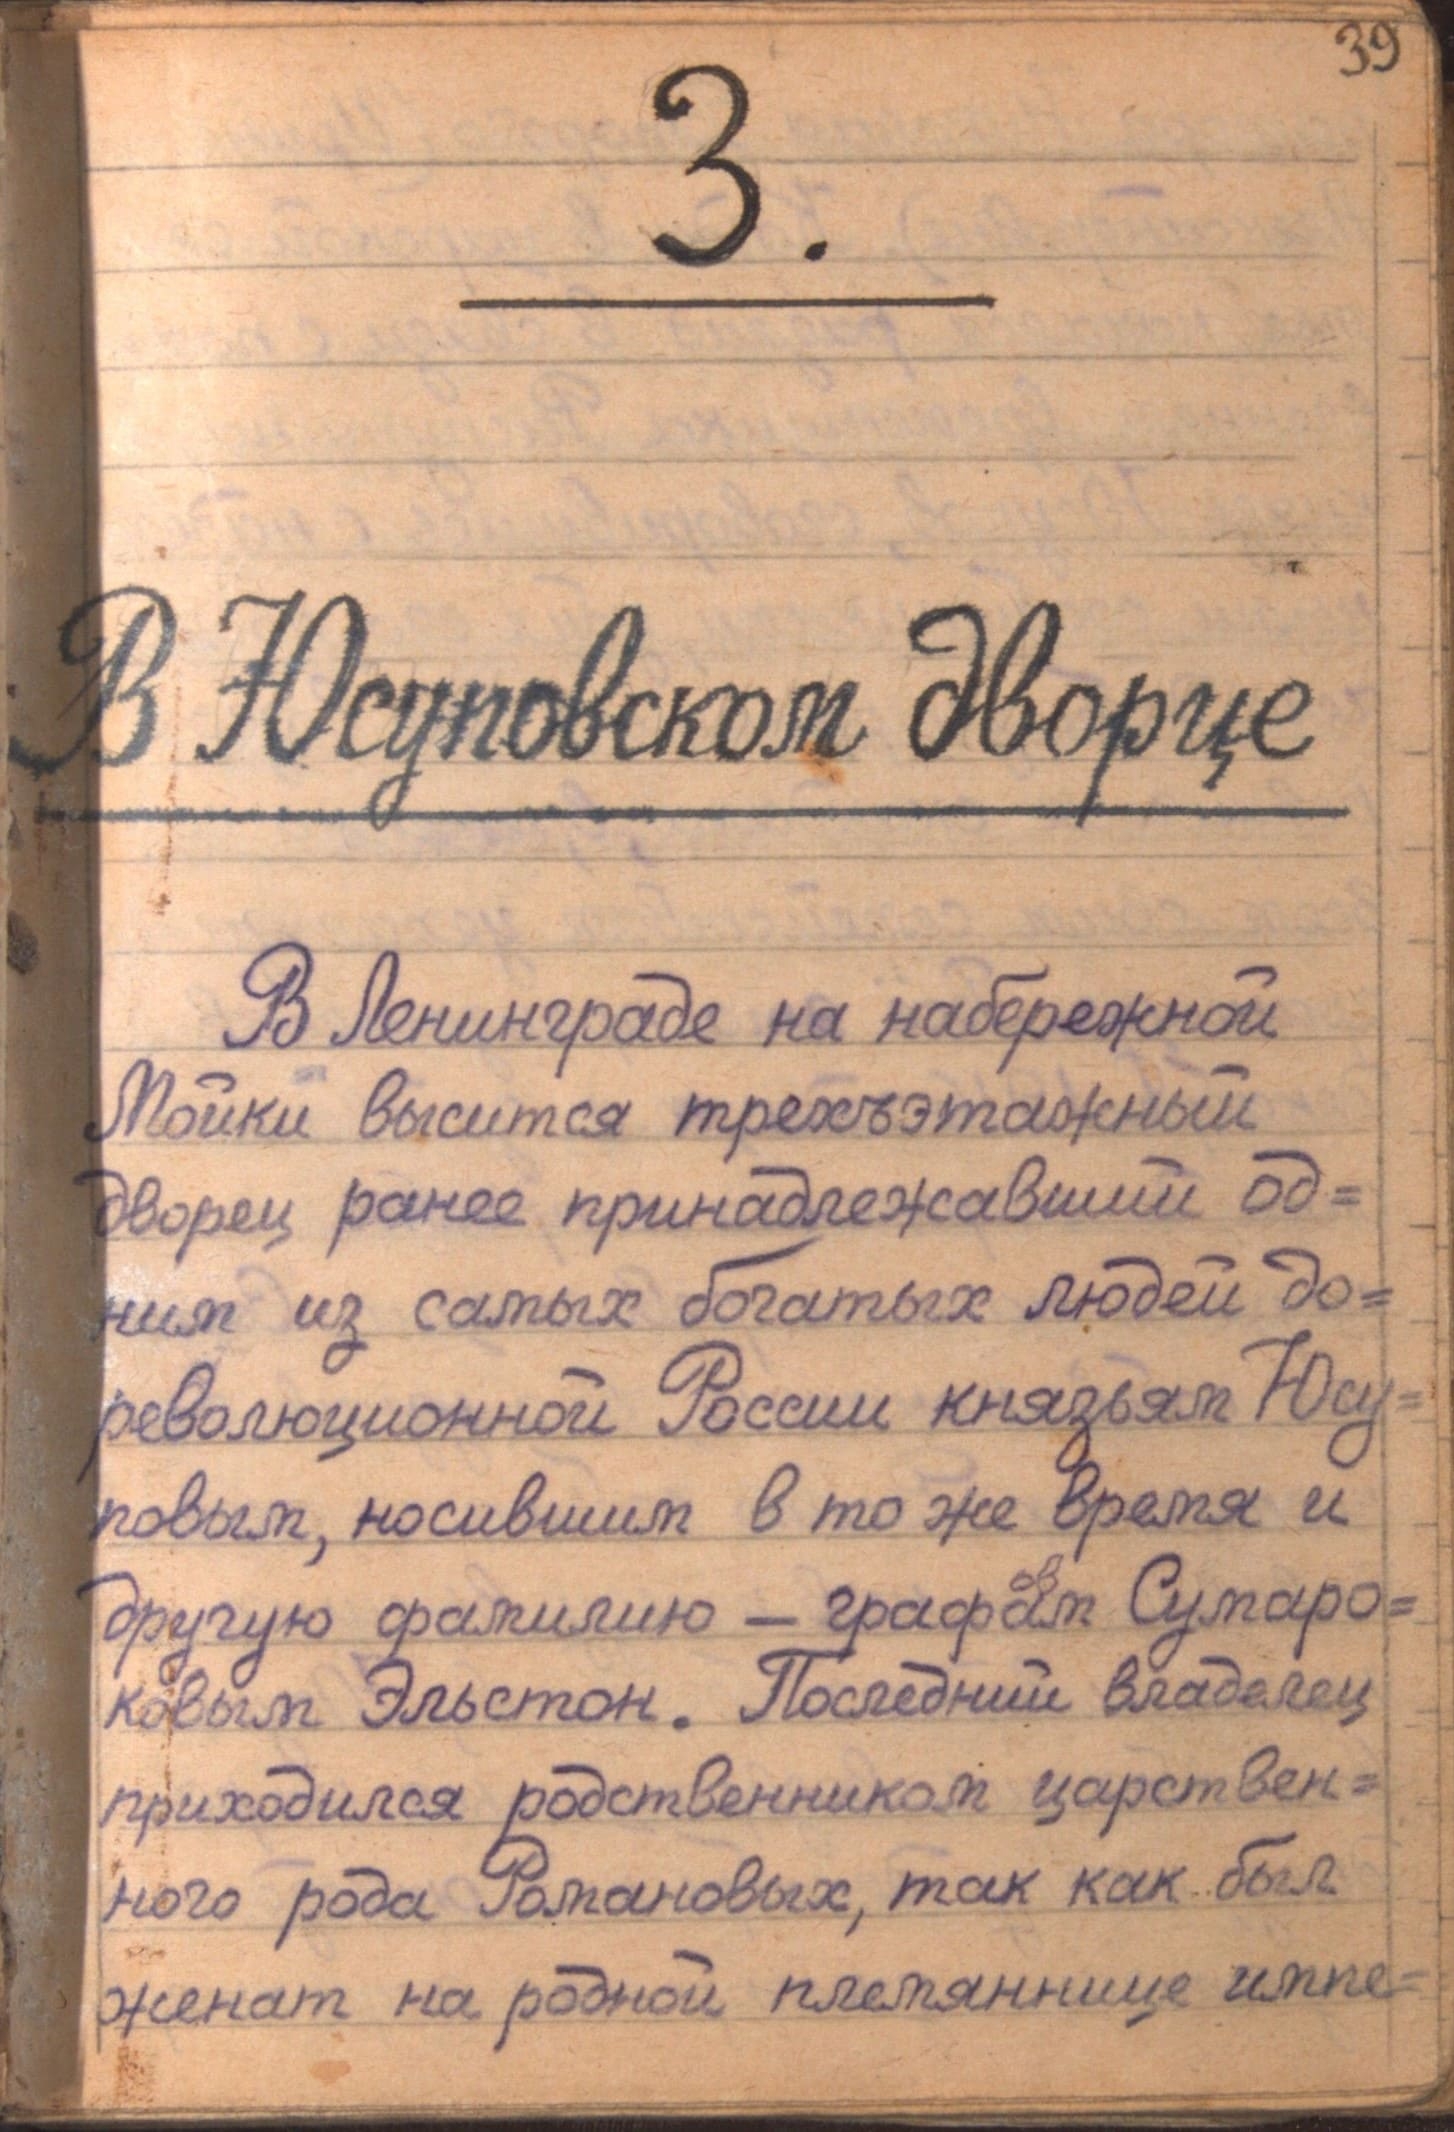 39
3.
В Юсуповском дворце
В Ленинграде на набережной
Мойки высится трехъэтажный
дворец ранее принадлежавший од=
ним из самых богатых людей до=
революционной России князьям Юсу=
повым, носившим в то же время и
другую фамилию — графов Сумаро=
ковым Эльстон. Последний владелец
приходился родственником царствен=
ного рода Романовых, так как был
женат на родной племяннице импе=